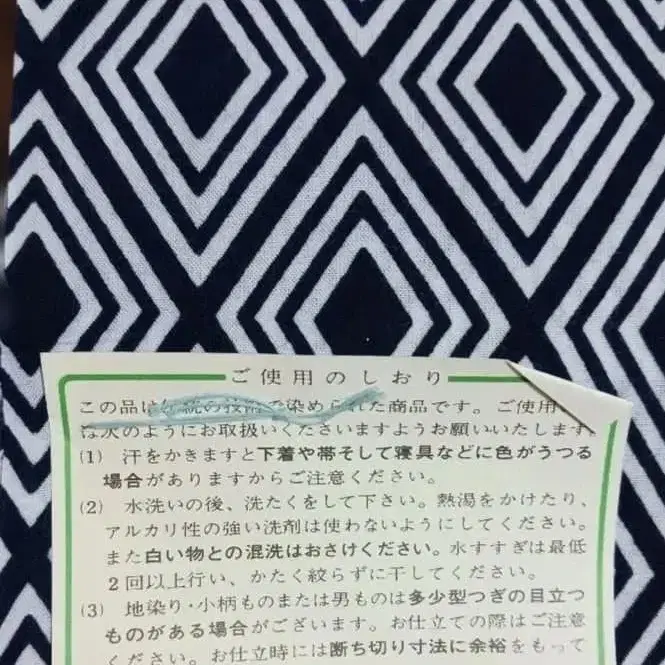 ご使用のしおり
この品は伝統の技術で染められた商品です。ご使用
は次のようにお取扱いくださいますようお願いいたします。
(1) 汗をかきますと下着や帯そして寝具などに色がうつる
場合がありますからご注意ください。
(2) 水洗いの後、洗たくをして下さい。熱湯をかけたり、
アルカリ性の強い洗剤は使わないようにしてください。
また白い物との混洗はおさけください。水すすぎは最低
2回以上行い、かたく絞らずに干してください。
(3) 地染り・小柄ものまたは男ものは多少型つぎの目立つ
ものがある場合がございます。お仕立ての際はご注意
ください。お仕立時には断ち切り寸法に余裕をもって